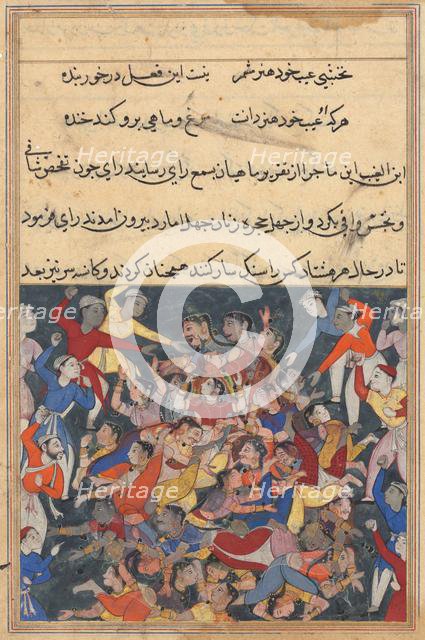 نخشبی عیب خود هنر شمر نیست این فعل در خور بنده
هر که او عیب خود هنر دانست مرغ و ماهی برو کند خنده
ابن الغیب این ماجرا از تقریر ماهیان بسمع رای رسانید رای چون تفحص شافی
و تجسس وافی بکرد و از چهل حجره زنان چهل امارد بیرون امدند رای فرمود
تا در حال هر هشتاد کس را سنگسار کنند همچنان کردند و کامه سر نیز بعد
Heritage
Heritage
Heritage
Heritage
Heritage
Heritage
Heritage
Heritage